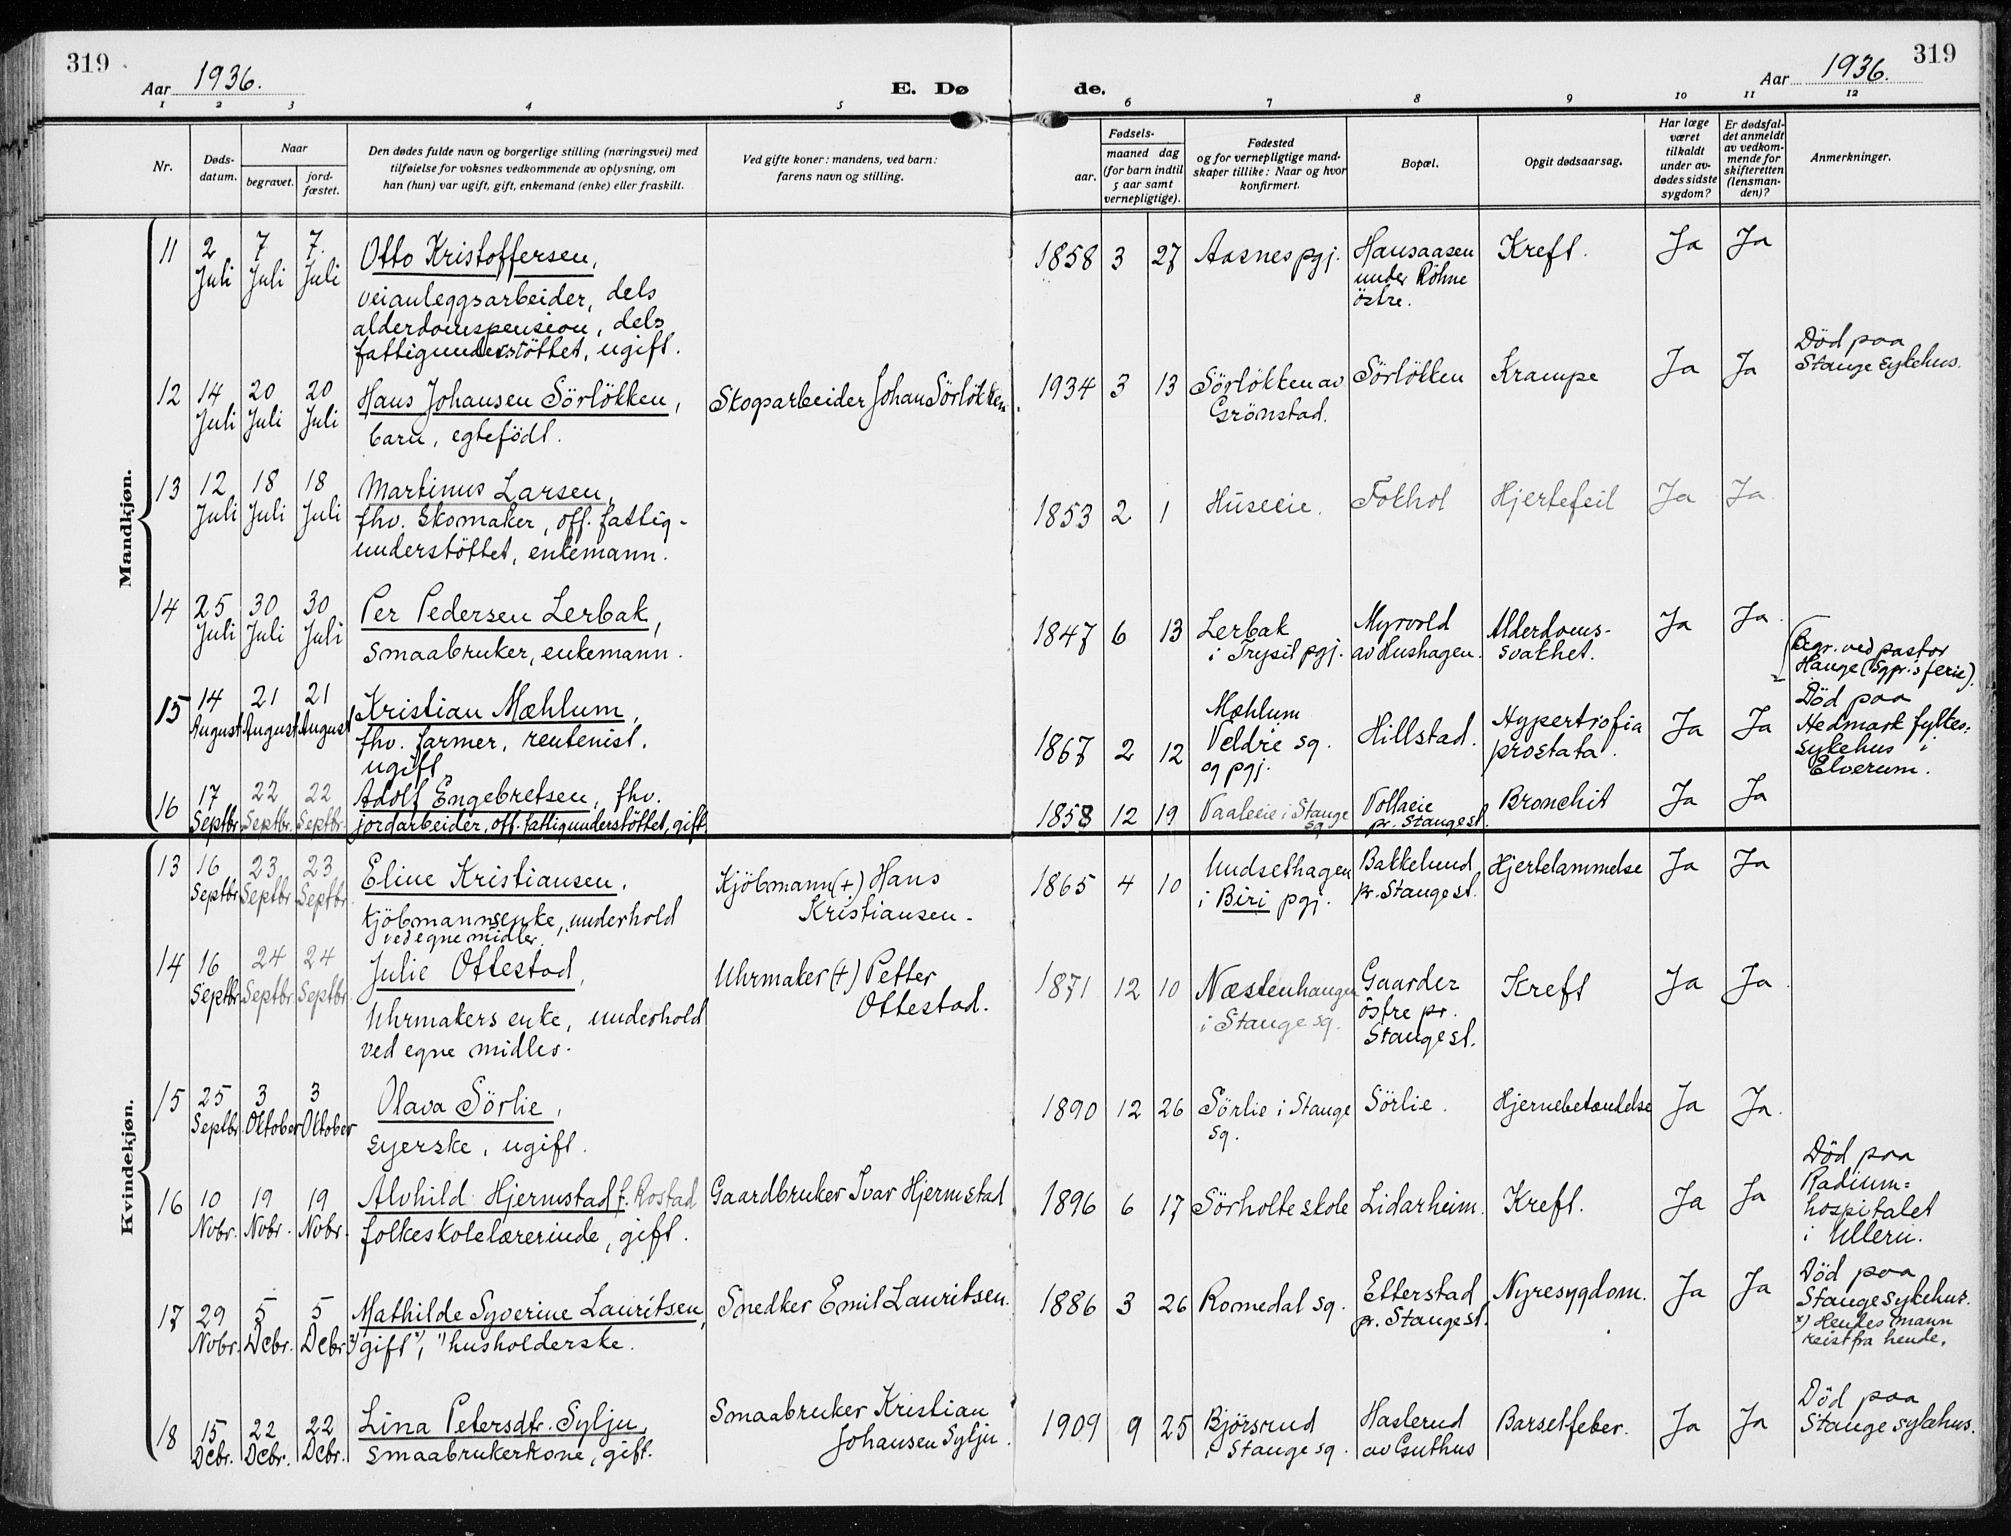 319
Aar 1936.
E. Dø
de.
Aar 1936.
319
1 2 3 4 5 6 7 8 9 10 11 12
Nr.
Døds-
datum.
Naar
begravet.
jord-
fæstet.
Den dødes fulde navn og borgerlige stilling (næringsvei) med
tilføielse for voksnes vedkommende av oplysning, om
han (hun) var ugift, gift, enkemand (enke) eller fraskilt.
Ved gifte koner: mandens, ved barn:
farens navn og stilling.
Fødsels-
aar.
maaned dag
(for barn indtil
5 aar samt
vernepligtige).
Fødested
og for vernepligtige mand-
skaper tillike: Naar og hvor
konfirmert.
Bopæl.
Opgit dødsaarsag.
Har læge
været
tilkaldt
under av-
dødes sidste
sygdom?
Er dødsfal-
det anmeldt
av vedkom-
mende for
skifteretten
(lensman-
den)?
Anmerkninger.
Mandkjøn.
11
2
Juli
7
Juli
7.
Juli
Otto Kristoffersen,
veianleggsarbeider, dels
alderdomspension, dels
fattigunderstöttet, ugift.
1858 3 27
Aasnes pgj.
Hansaasen
under Röhne
östre.
Kreft.
Ja
Ja
12
14
Juli
20
Juli
20
Juli
Hans Johansen Sörlökken,
barn, egtefödt.
Skogsarbeider Johan Sörlökken.
1934 3 13
Sörlökken av
Grönstad.
Sörlökken
Krampe
Ja
Ja
Död paa
Stange Sykehus.
13
12
Juli
18
Juli
18
Juli
Martinus Larsen,
fhv. skomaker, off. fattig-
understöttet, enkemann.
1853 2 1
Huseeie.
Fokhol
Hjertefeil
Ja
Ja
14
25
Juli
30
Juli
30
Juli
Per Pedersen Lerbak,
smaabruker, enkemann.
1847 6 13
Lerbak
i Trysil pgj.
Myrvold
av Hushagen.
Alderdoms-
svakhet.
Ja
Ja.
Begr. ved pastor
Hauge (Sgpr.s ferie).
15
14
August
21
August
21
August
Kristian Mæhlum,
fhv. farmer, rentenist.
ugift
1867 2 12
Mæhlum
Veldre sg.
og pgj.
Hillstad.
Hypertrofia
prostata.
Ja
Ja
Död paa
Hedmark fylkes-
sykehus i
Elverum.
16
17
Septbr.
22
Septbr.
22
Septbr.
Adolf Engebretsen, fhv.
jordarbeider, off. fattigunderstöttet, gift.
1858 12 19
Vaaleeie i Stange
sg.
Vollaeie
pr. Stange st.
Bronchit
Ja
Ja
Kvindekjøn.
13
16
Septbr.
23
Septbr.
23
Septbr.
Eline Kristiansen.
Kjöbmannsenke, underhold
ved egne midler.
Kjöbmann (+) Hans
Kristiansen.
1865 4 10
Undsethagen
i Biri pgj.
Bakkelund
pr. Stange st.
Hjertelammelse
Ja
Ja
14
16
Septbr.
24
Septbr.
24
Septbr.
Julie Ottestad,
Uhrmakers enke, underhold
ved egne midler.
Uhrmaker (+) Petter
Ottestad.
1871 12 10
Næstenhaugen
i Stange sg.
Gaarder
östre pr.
Stange st.
Kreft
Ja
Ja
15
25
Septbr.
3
Oktober
3
Oktober
Olava Sörlie,
Eyerske, ugift.
1890 12 26
Sörlie i Stange
sg.
Sörlie.
Hjernebetændelse
Ja
Ja.
16
10
Novbr.
19
Novbr.
19
Novbr.
Alvhild Hjermstad f. Rostad
folkeskolelærerinde, gift.
Gaardbruker Ivar Hjermstad
1896 6 17
Sörholte skole
Lidarheim.
Kreft.
Ja
Ja
Död paa
Radium-
hospitalet
i Ullern.
17
29
Novbr.
5
Dcbr.
5
Dcbr.
Mathilde Syverine Lauritsen,
gift x), husholderske.
Snedker Emil Lauritsen.
1886 3 26
Romedal sg.
Etterstad
pr. Stange st.
Nyresygdom.
Ja
Ja
Död paa
Stange sykehus.
x) Hendes mann
reist fra hende.
18
15
Dcbr.
22
Dcbr.
22
Dcbr.
Lina Petersdtr. Sylju,
smaabrukerkone, gift.
Smaabruker Kristian
Johansen Sylju.
1909 9 25
Björsrud
i Stange sg.
Haslerud
av Guthus
Barselfeber.
Ja
Ja
Död paa
Stange sykehus.